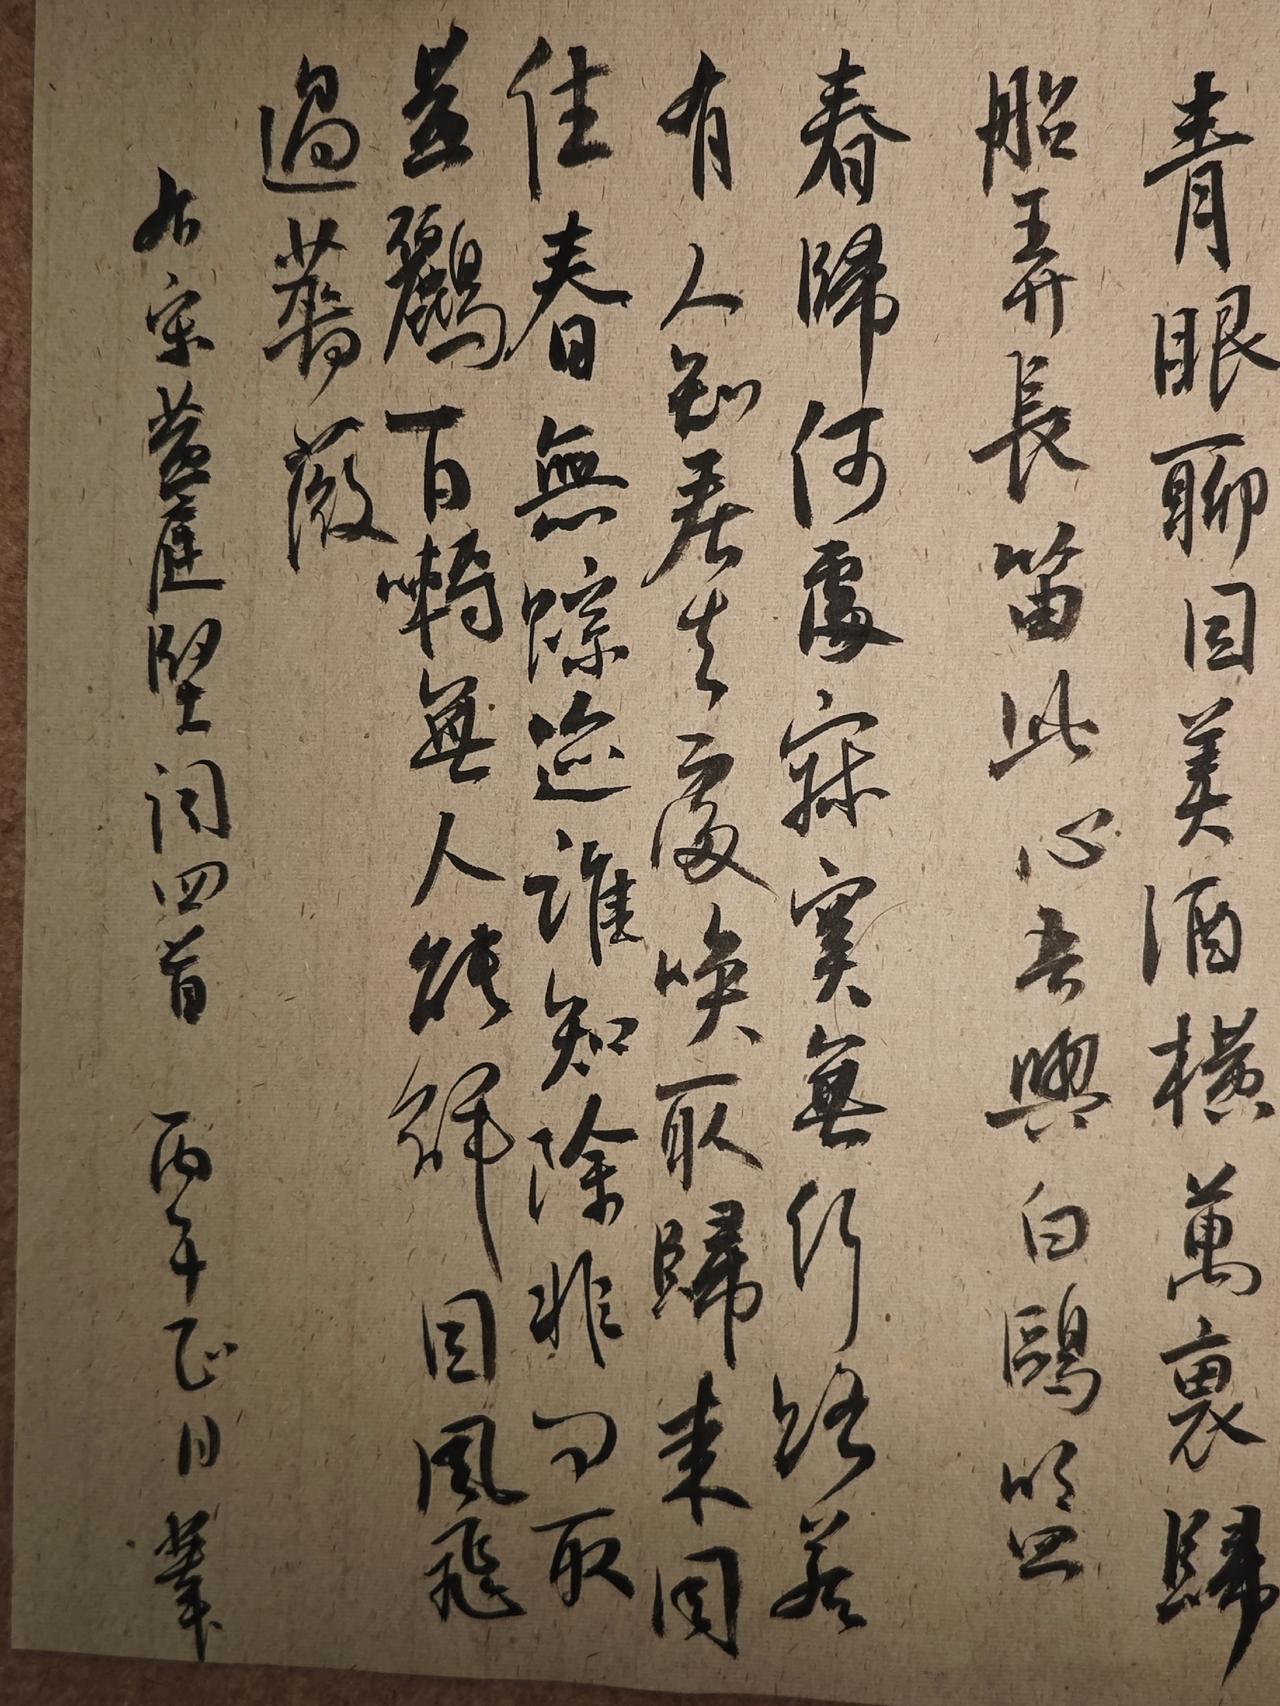 青眼聊因美酒橫萬裏歸
船弄長笛此心吾與白鷗盟
春歸何處寂寞無行路若
有人知春去處喚取歸來同
住春無踪迹誰知除非問取
黃鸝百囀無人能解因風飛
過薔薇
右宋黃庭堅詞四首 丙午正月